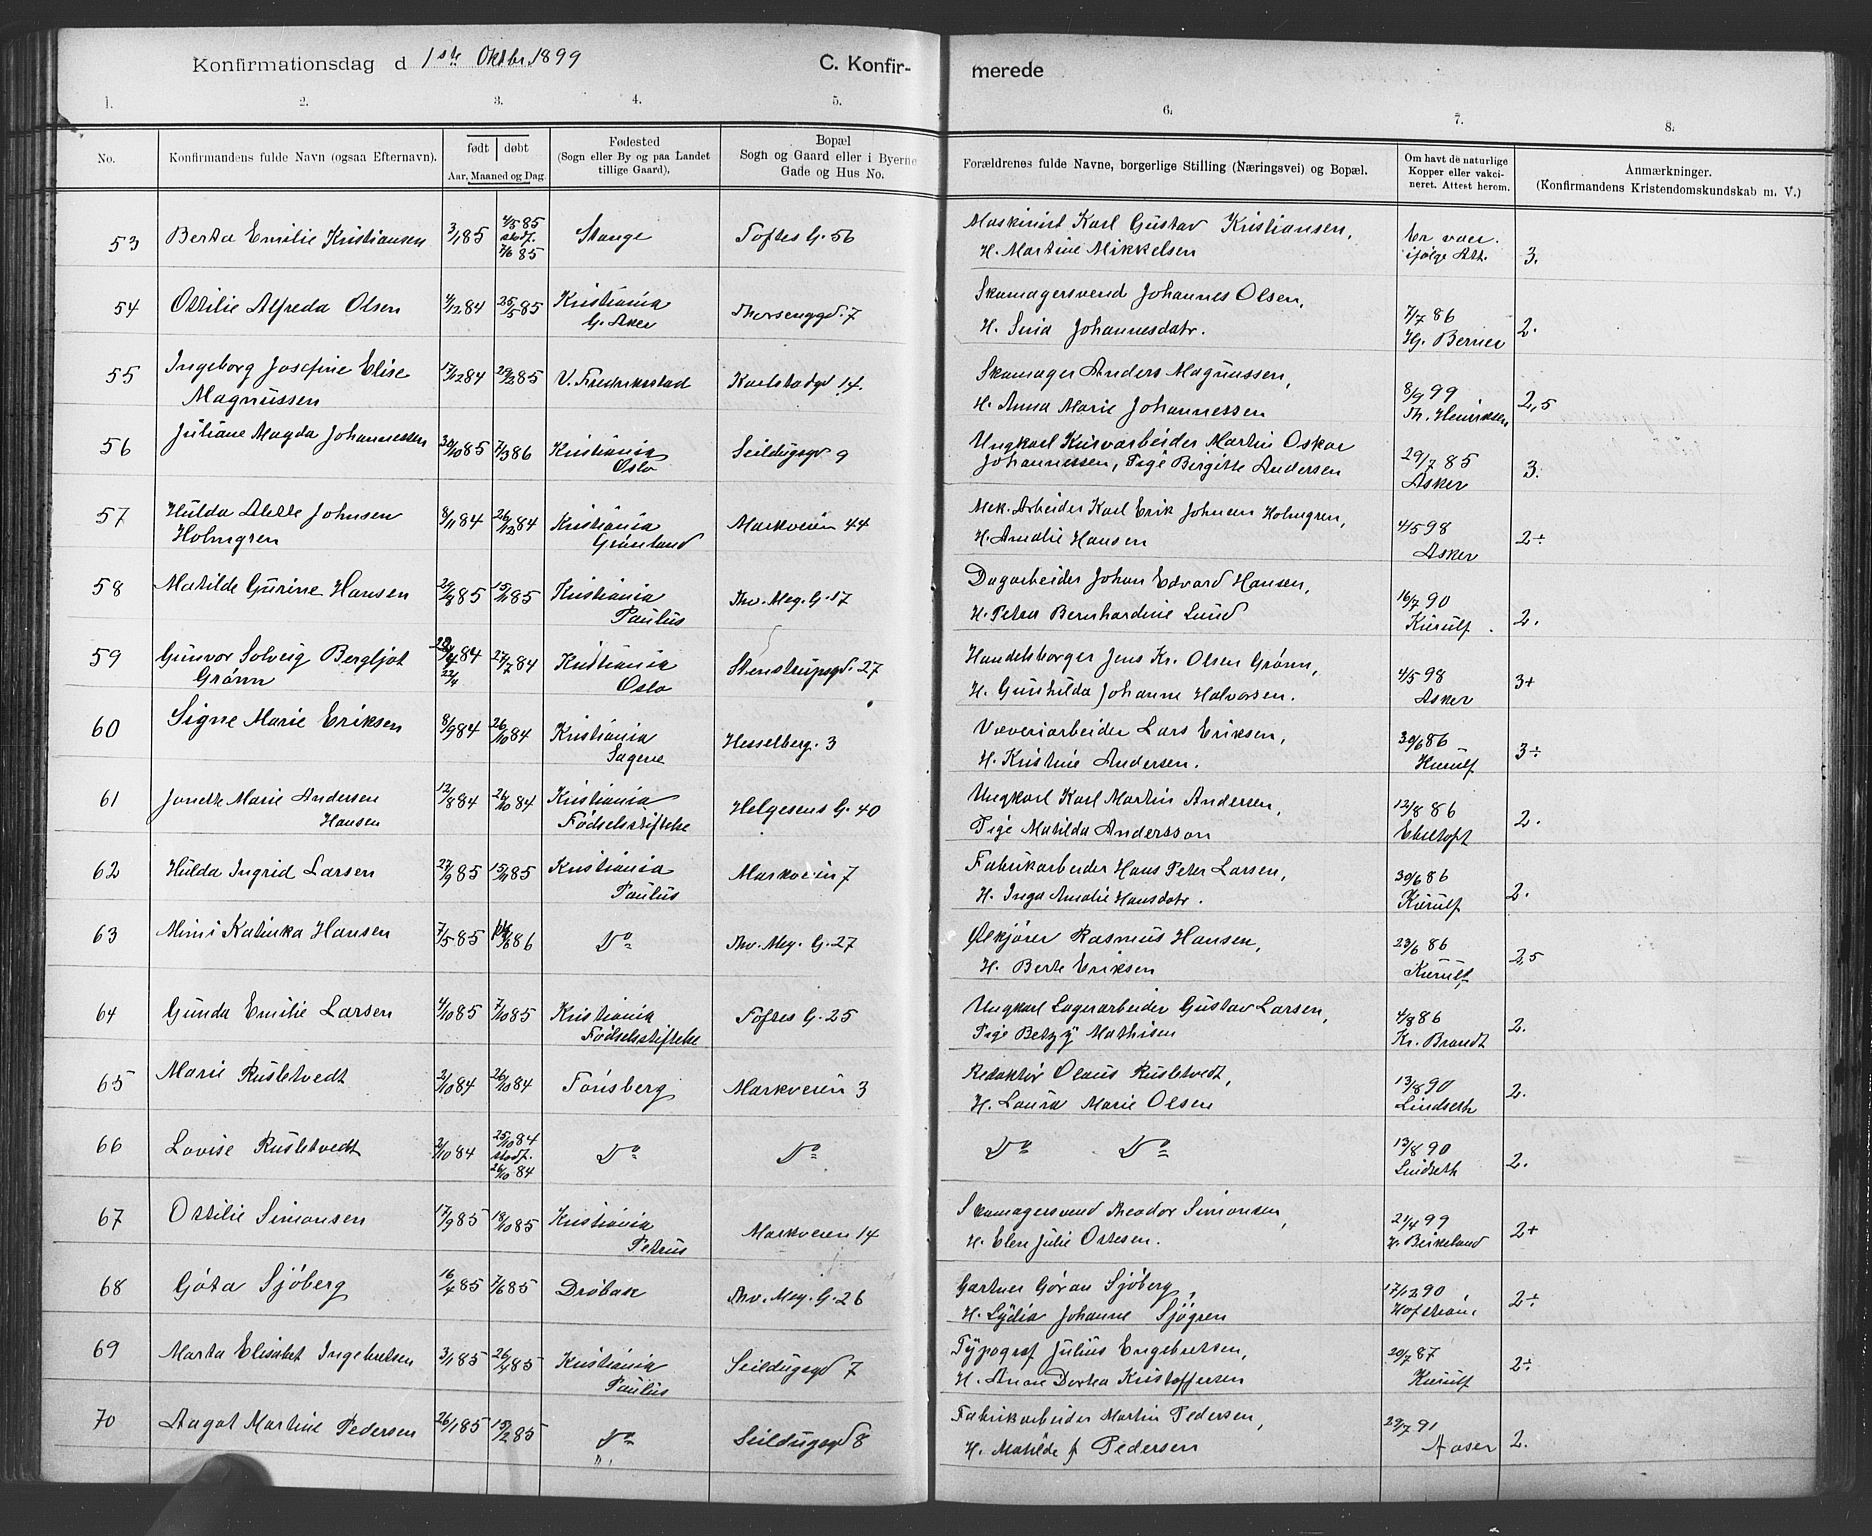 Konfirmationsdag d 1ste Oktbr. 1899 C. Konfirmerede
1. 2. 3. 4. 5. 6. 7. 8.
No. Konfirmandens fulde Navn (ogsaa Efternavn). født døbt Aar, Maaned og Dag. Fødested (Sogn eller By og paa Landet tillige Gaard). Bopæl Sogn og Gaard eller i Byerne Gade og Hus No. Forældrenes fulde Navne, borgerlige Stilling (Næringsvei) og Bopæl. Om havt de naturlige Kopper eller vakcineret. Attest herom. Anmærkninger. (Konfirmandens Kristendomskundskab m. V.)
53 Berta Emilie Kristiansen 3/1 85 4/3 85 stadf. 7/6 85 Stange Toftes G. 56 Maskinist Karl Gustav Kristiansen, Er vacc.
H. Martine Mikkelsen ifølge Att. 3.
54 Ottilie Alfreda Olsen 4/12 84 25/5 85 Kristiania G. Aker Thorsenggd. 7 Skomagersvend Johannes Olsen, 7/7 86
H. Sina Johannesdatr. Hj. Berner 2.
55 Ingeborg Josefine Elise Magnussen 17/12 84 29/2 85 V. Fredrikstad Karlstadgd 14. Skomager Anders Magnussen, 8/9 99
H. Anna Marie Johannessen Th. Henriksen 2,5
56 Juliane Magda Johannessen 30/10 85 7/3 86 Kristiania Oslo Seildugsgd 9 Ungkarl Kurvarbeider Martin Oskar 29/7 85
Johannessen, Pige Birgitte Andersen Asker 3.
57 Hulda Alette Johnsen Holmgren 8/11 84 26/12 84 Kristiania Grønland Markveien 44 Mek. Arbeider Karl Erik Johnsen Holmgren, 4/5 98
H. Amalie Hansen Asker 2÷
58 Matilde Gurine Hansen 29/8 85 15/11 85 Kristiania Paulus Thv. Mey. G. 17 Dagarbeider Johan Edvard Hansen, 16/7 90
H. Petra Bernhardine Lund Kierulf. 2.
59 Gunvor Solveig Bergljot Grønn 84 23/4 27/7 84 Kristiania Oslo Stenstrupsgd. 27 Handelsborger Jens Kr. Olsen Grønn, 4/5 98
H. Gunhilda Johanne Halvorsen. Asker 3+
60 Signe Marie Eriksen 8/9 84 26/10 84 Kristiania Sagene Hesselberg. 3 Væveriarbeider Lars Eriksen, 30/6 86
H. Kristine Andersen. Kierulf 3÷
61 Janette Marie Andersen Hansen 12/8 84 26/10 84 Kristiania Fødselsstiftelse Helgesens G. 40 Ungkarl Karl Martin Andersen, 12/8 86
Pige Matilda Andersson Ebeltoft 2.
62 Hulda Ingrid Larsen 27/9 85 15/11 85 Kristiania Paulus Markveien 7 Fabrikarbeider Hans Peter Larsen, 30/6 86
H. Inga Amalie Hansdatr. Kierulf 2.
63 Mimi Katinka Hansen 7/5 85 86 Do Thv. Mey. G. 27 Ølkjører Rasmus Hansen, 23/6 86
H. Berte Eriksen Kierulf 2,5
64 Gunda Emilie Larsen 4/10 85 7/10 85 Kristiania Fødselsstiftelse Toftes G. 25 Ungkarl Lagerarbeider Gustav Larsen, 4/8 86
Pige Betzy Mathisen Kr. Brandt 2.
65 Marie Rusletvedt 2/10 84 26/10 84 Tønsberg Markveien 3 Redaktør Olaus Rusletvedt, 13/8 90
H. Laura Marie Olsen Lindseth 2.
66 Lovise Rusletvedt 2/10 84 25/10 84 stadf. 26/10 84 Do Do Do Do 13/8 90
Lindseth 2.
67 Ottilie Simonsen 17/9 85 18/10 85 Kristiania Petrus Markveien 14 Skomagersvend Theodor Simonsen, 21/4 99
H. Elen Julie Ottesen. H. Birkeland 2+
68 Gøta Sjøberg 16/4 85 7/6 85 Drøbak Thv. Mey. G. 26 Gartner Gøran Sjøberg, 17/12 90
H. Lydia Johanne Sjøgren 2÷
69 Marta Elisabet Ingebretsen 3/1 85 26/4 85 Kristiania Paulus Seildugsgd 7 Typograf Julius Engebretsen, 20/7 87
H. Anne Dortea Kristoffersen Kierulf 2÷
70 Aagot Martine Pedersen 26/1 85 15/2 85 Do Seildugsgd 8 Fabrikarbeider Martin Pedersen, 29/7 91
H. Matilde f. Pedersen Aaser 2.